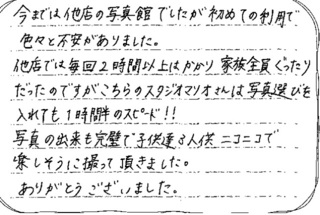 今までは他店の写真館でしたが初めての利用で
色々と不安がありました。
他店では毎回2時間以上はかかり家族全員ぐったり
だったのですがこちらのスタジオマリオさんは写真選びも
入れても1時間半のスピード!!
写真の出来も完璧で子供達3人供ニコニコで
楽しそうに撮って頂きました。
ありがとうございました。